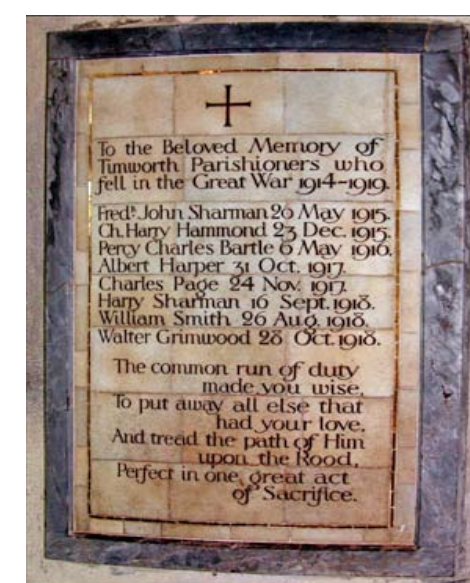 To the Beloved Memory of
Timworth Parishioners who
fell in the Great War 1914-1919.
Fredk. John Sharman 20 May 1915.
Ch. Harry Hammond 23 Dec. 1915.
Percy Charles Bartle 6 May 1916.
Albert Harper 31 Oct. 1917.
Charles Page 24 Nov. 1917.
Harry Sharman 16 Sept. 1918.
William Smith 26 Aug. 1918.
Walter Grimwood 28 Oct. 1918.
The common run of duty
made you wise,
To put away all else that
had your love.
And tread the path of Him
upon the Rood,
Perfect in one great act
of Sacrifice.